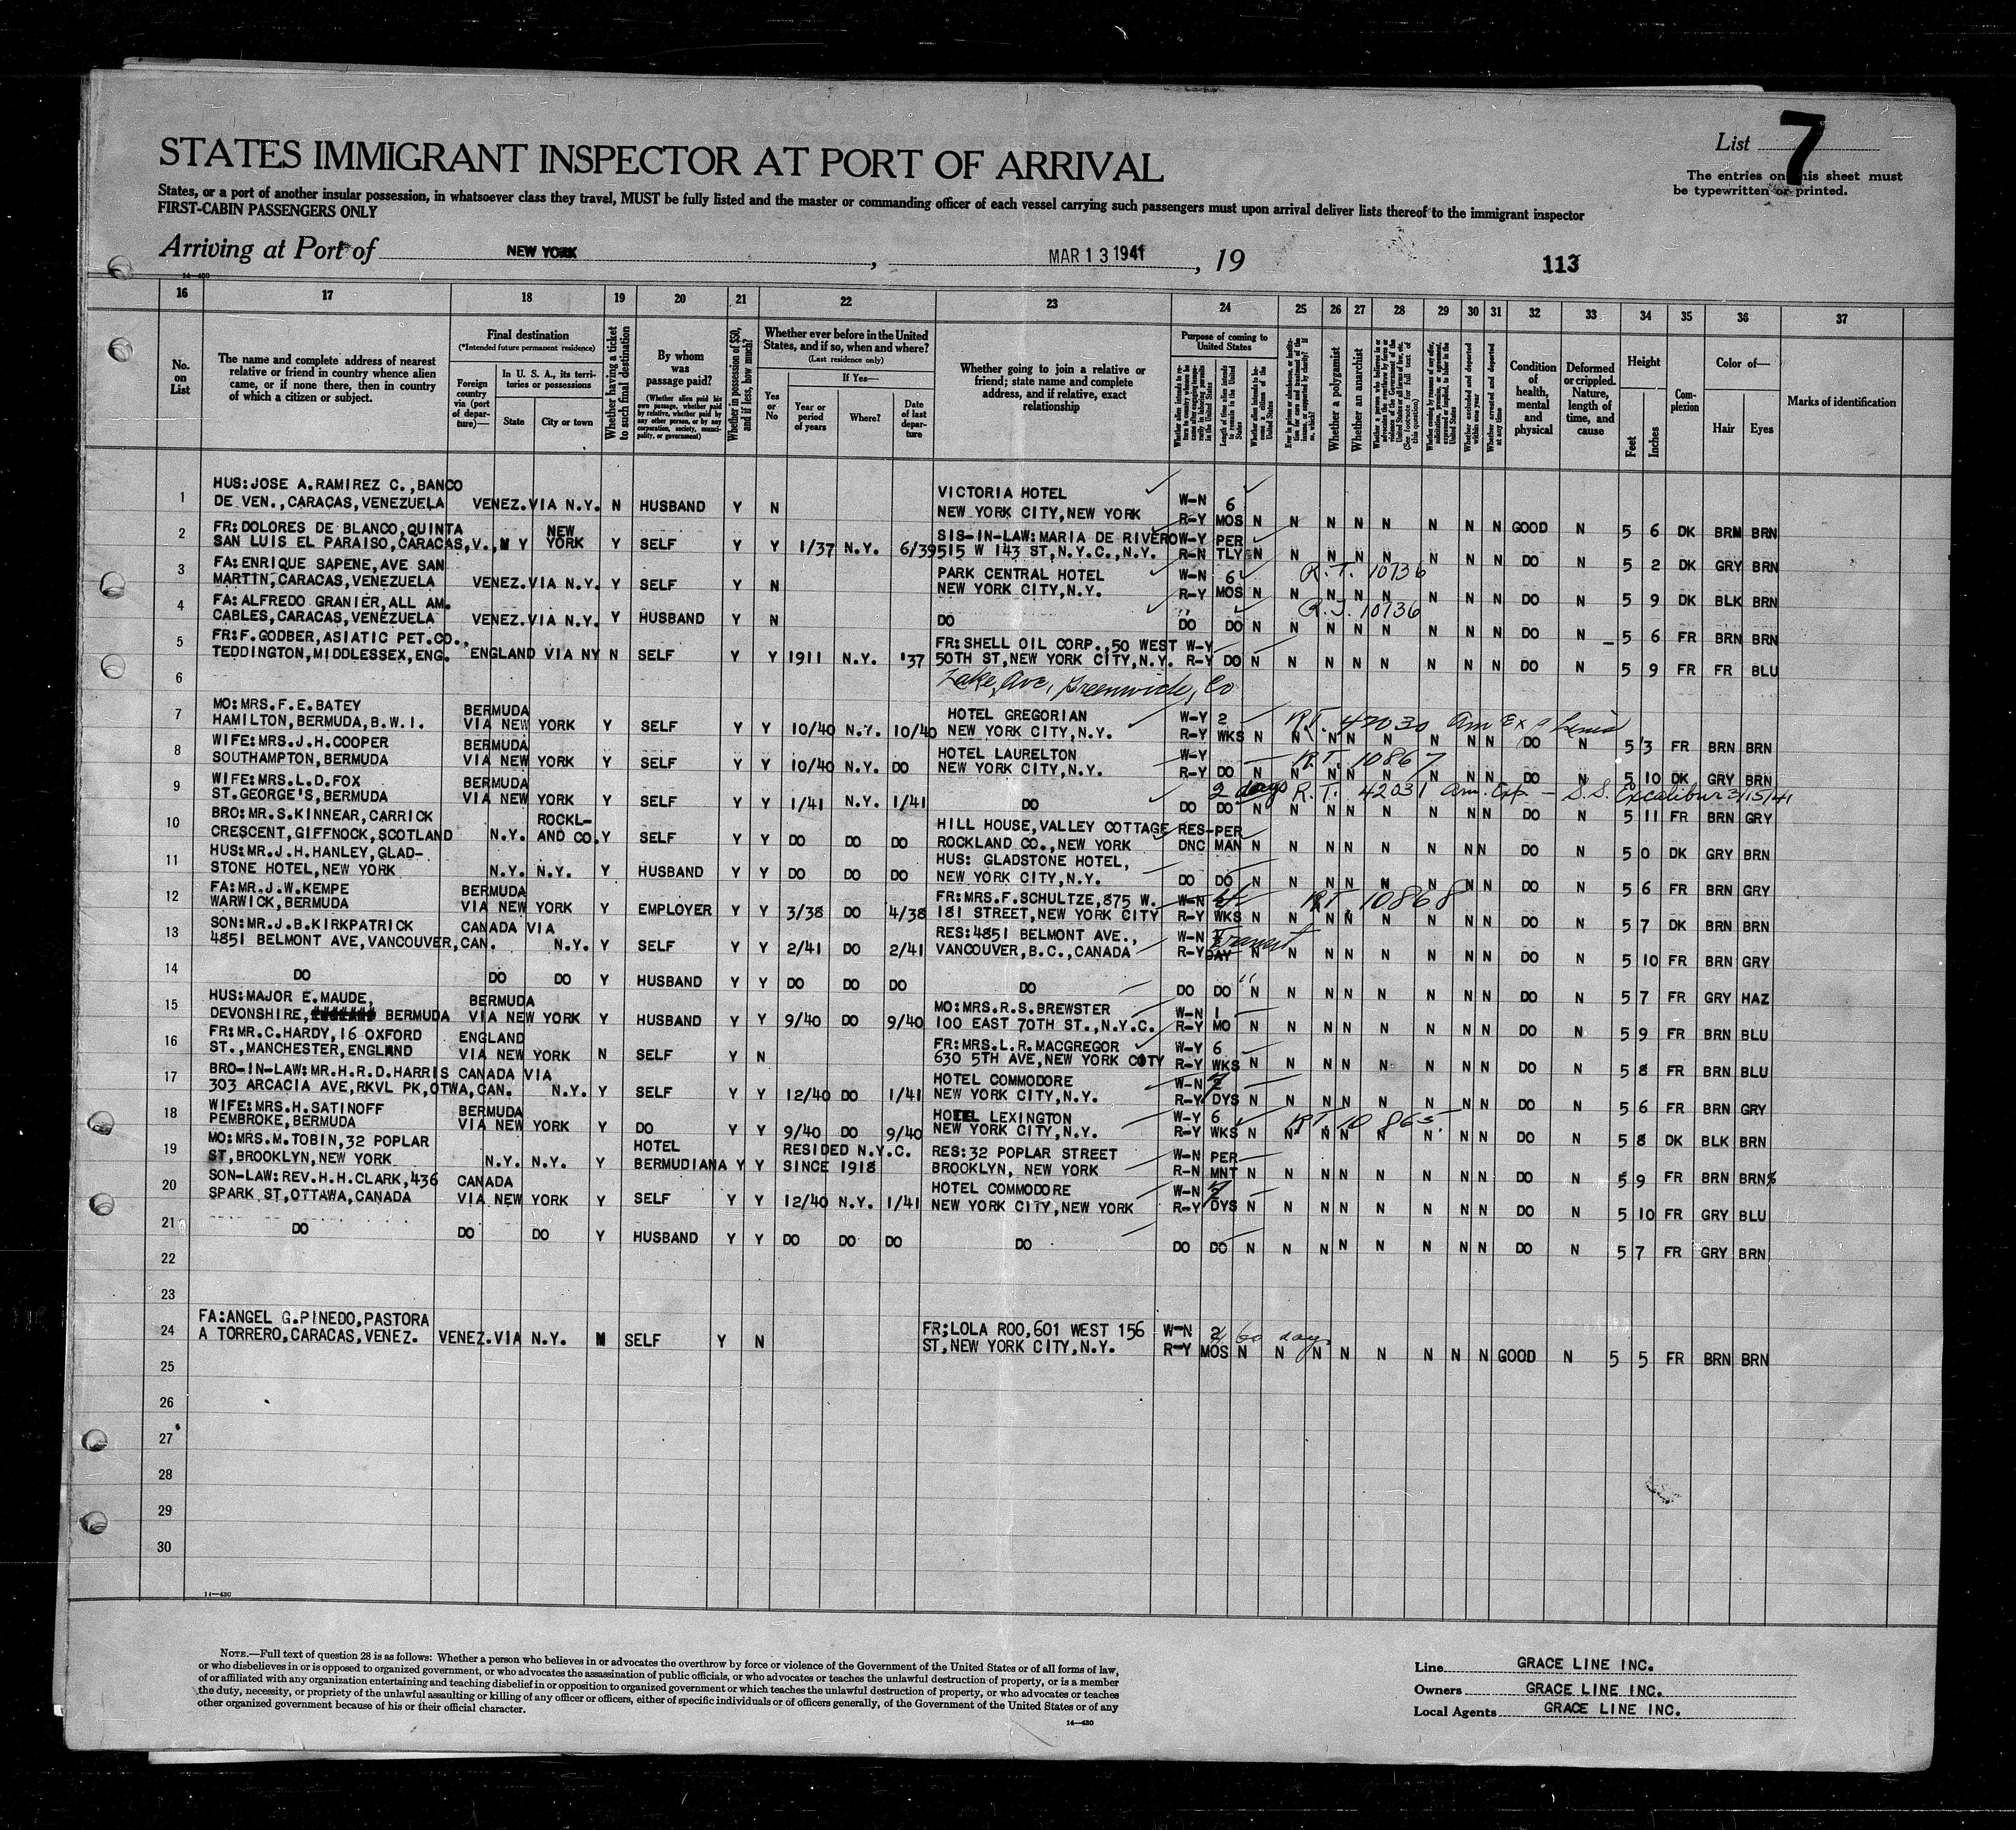 STATES IMMIGRANT INSPECTOR AT PORT OF ARRIVAL
List 7
The entries on this sheet must
be typewritten or printed.
States, or a port of another insular possession, in whatsoever class they travel, MUST be fully listed and the master or commanding officer of each vessel carrying such passengers must upon arrival deliver lists thereof to the immigrant inspector
FIRST-CABIN PASSENGERS ONLY
Arriving at Port of NEW YORK, MAR 13 1941, 19
113
14—430
16 17 18 19 20 21 22 23 24 25 26 27 28 29 30 31 32 33 34 35 36 37
No. on List
The name and complete address of nearest relative or friend in country whence alien came, or if none there, then in country of which a citizen or subject.
Final destination
(*Intended future permanent residence)
Foreign country via (port of departure)—
In U. S. A., its territories or possessions
State
City or town
Whether having a ticket to such final destination
By whom was passage paid?
(Whether alien paid his own passage, whether paid by relative, whether paid by any other person, or by any corporation, society, municipality, or government)
Whether in possession of $50, and if less, how much?
Whether ever before in the United States, and if so, when and where?
(Last residence only)
Yes or No
If Yes—
Year or period of years
Where?
Date of last departure
Whether going to join a relative or friend; state name and complete address, and if relative, exact relationship
Purpose of coming to United States
Length of time alien intends to remain in the United States
Whether alien intends to become a citizen of the United States
Whether a polygamist
Whether an anarchist
Whether excluded and deported within one year
Whether arrested and deported at any time
Condition of health, mental and physical
Deformed or crippled. Nature, length of time, and cause
Height
Feet
Inches
Complexion
Color of—
Hair
Eyes
Marks of identification
HUS:JOSE A.RAMIREZ C.,BANCO VICTORIA HOTEL W-N 6
1 DE VEN.,CARACAS,VENEZUELA VENEZ.VIA N.Y. N HUSBAND Y N NEW YORK CITY,NEW YORK R-Y MOS N N N N N N N N GOOD N 5 6 DK BRN BRN
FR:DOLORES DE BLANCO,QUINTA NEW SIS-IN-LAW:MARIA DE RIVERO W-Y PER
2 SAN LUIS EL PARAISO,CARACAS,V., N Y YORK Y SELF Y Y 1/37 N.Y. 6/39 515 W 143 ST,N.Y.C.,N.Y. R-N TLY N N N N N N N N DO N 5 2 DK GRY BRN
FA:ENRIQUE SAPENE,AVE SAN PARK CENTRAL HOTEL W-N 6 R.T. 10736
3 MARTIN,CARACAS,VENEZUELA VENEZ.VIA N.Y. Y SELF Y N NEW YORK CITY,N.Y. R-Y MOS N N N N N N N N DO N 5 9 DK BLK BRN
FA:ALFREDO GRANIER,ALL AM. " R.T. 10736
4 CABLES,CARACAS,VENEZUELA VENEZ.VIA N.Y. Y HUSBAND Y N DO DO DO N N N N N N N N DO N 5 6 FR BRN BRN
FR:F.GODBER,ASIATIC PET.CO., FR:SHELL OIL CORP.,50 WEST W-Y
5 TEDDINGTON,MIDDLESSEX,ENG. ENGLAND VIA NY N SELF Y Y 1911 N.Y. '37 50TH ST,NEW YORK CITY,N.Y. R-Y DO N N N N N N N N DO N 5 9 FR FR BLU
6 Lake Ave, Greenwich, Co
MO:MRS.F.E.BATEY BERMUDA HOTEL GREGORIAN W-Y 2 R.T. 42030 Am Exp
7 HAMILTON,BERMUDA,B.W.I. VIA NEW YORK Y SELF Y Y 10/40 N.Y. 10/40 NEW YORK CITY,N.Y. R-Y WKS N N N N N N N N DO N 5 3 FR BRN BRN
WIFE:MRS.J.H.COOPER BERMUDA HOTEL LAURELTON W-Y R.T. 10867
8 SOUTHAMPTON,BERMUDA VIA NEW YORK Y SELF Y Y 10/40 N.Y. DO NEW YORK CITY,N.Y. R-Y DO N N N N N N N N DO N 5 10 DK GRY BRN
WIFE:MRS.L.D.FOX BERMUDA 2 days R.T. 42031 Am. Exp — S.S. Excalibur 3/15/41
9 ST.GEORGE'S,BERMUDA VIA NEW YORK Y SELF Y Y 1/41 N.Y. 1/41 DO DO DO N N N N N N N N DO N 5 11 FR BRN GRY
BRO:MR.S.KINNEAR,CARRICK ROCKL- HILL HOUSE,VALLEY COTTAGE RES-PER
10 CRESCENT,GIFFNOCK,SCOTLAND N.Y. AND CO. Y SELF Y Y DO DO DO ROCKLAND CO.,NEW YORK DNC MAN N N N N N N N N DO N 5 0 DK GRY BRN
HUS:MR.J.H.HANLEY,GLAD- HUS: GLADSTONE HOTEL,
11 STONE HOTEL,NEW YORK N.Y. N.Y. Y HUSBAND Y Y DO DO DO NEW YORK CITY,N.Y. DO DO N N N N N N N N DO N 5 6 FR BRN GRY
FA:MR.J.W.KEMPE BERMUDA FR:MRS.F.SCHULTZE,875 W. W-N RT 10868
12 WARWICK,BERMUDA VIA NEW YORK Y EMPLOYER Y Y 3/38 DO 4/38 181 STREET,NEW YORK CITY R-Y WKS N N N N N N N N DO N 5 7 DK BRN BRN
SON:MR.J.B.KIRKPATRICK CANADA VIA RES:4851 BELMONT AVE., W-N Transit
13 4851 BELMONT AVE,VANCOUVER,CAN. N.Y. Y SELF Y Y 2/41 DO 2/41 VANCOUVER,B.C.,CANADA R-Y DAY N N N N N N N N DO N 5 10 FR BRN GRY
14 DO DO DO Y HUSBAND Y Y DO DO DO DO DO DO " N N N N N N N N DO N 5 7 FR GRY HAZ
HUS:MAJOR E.MAUDE, BERMUDA MO:MRS.R.S.BREWSTER W-N 1
15 DEVONSHIRE, BERMUDA VIA NEW YORK Y HUSBAND Y Y 9/40 DO 9/40 100 EAST 70TH ST.,N.Y.C. R-Y MO N N N N N N N N DO N 5 9 FR BRN BLU
FR:MR.C.HARDY,16 OXFORD ENGLAND FR:MRS.L.R.MACGREGOR W-Y 6
16 ST.,MANCHESTER,ENGLAND VIA NEW YORK N SELF Y N 630 5TH AVE,NEW YORK CITY R-Y WKS N N N N N N N N DO N 5 8 FR BRN BLU
BRO-IN-LAW:MR.H.R.D.HARRIS CANADA VIA HOTEL COMMODORE W-N 2
17 303 ARCACIA AVE,RKVL PK,OTWA,CAN. N.Y. Y SELF Y Y 12/40 DO 1/41 NEW YORK CITY,N.Y. R-Y DYS N N N N N N N N DO N 5 6 FR BRN GRY
WIFE:MRS.H.SATINOFF BERMUDA HOTEL LEXINGTON W-Y 6 RT 10865
18 PEMBROKE,BERMUDA VIA NEW YORK Y DO Y Y 9/40 DO 9/40 NEW YORK CITY,N.Y. R-Y WKS N N N N N N N N DO N 5 8 DK BLK BRN
MO:MRS.M.TOBIN,32 POPLAR HOTEL RESIDED N.Y.C. RES:32 POPLAR STREET W-N PER
19 ST,BROOKLYN,NEW YORK N.Y. N.Y. Y BERMUDIANA Y Y SINCE 1918 BROOKLYN, NEW YORK R-N MNT N N N N N N N N DO N 5 9 FR BRN BRN
SON-LAW:REV.H.H.CLARK,436 CANADA HOTEL COMMODORE W-N 2
20 SPARK ST,OTTAWA,CANADA VIA NEW YORK Y SELF Y Y 12/40 N.Y. 1/41 NEW YORK CITY,NEW YORK R-Y DYS N N N N N N N N DO N 5 10 FR GRY BLU
21 DO DO DO Y HUSBAND Y Y DO DO DO DO DO DO N N N N N N N N DO N 5 7 FR GRY BRN
22
23
FA:ANGEL G.PINEDO,PASTORA FR;LOLA ROO,601 WEST 156 W-N 2 60 days
24 A TORRERO,CARACAS,VENEZ. VENEZ.VIA N.Y. N SELF Y N ST,NEW YORK CITY,N.Y. R-Y MOS N N N N N N N N GOOD N 5 5 FR BRN BRN
25
26
27
28
29
30
14—430
NOTE.—Full text of question 28 is as follows: Whether a person who believes in or advocates the overthrow by force or violence of the Government of the United States or of all forms of law,
or who disbelieves in or is opposed to organized government, or who advocates the assassination of public officials, or who advocates or teaches the unlawful destruction of property, or is a member
of or affiliated with any organization entertaining and teaching disbelief in or opposition to organized government or which teaches the unlawful destruction of property, or who advocates or teaches
the duty, necessity, or propriety of the unlawful assaulting or killing of any officer or officers, either of specific individuals or of officers generally, of the Government of the United States or of any
other organized government because of his or their official character.
14—430
Line GRACE LINE INC.
Owners GRACE LINE INC.
Local Agents GRACE LINE INC.